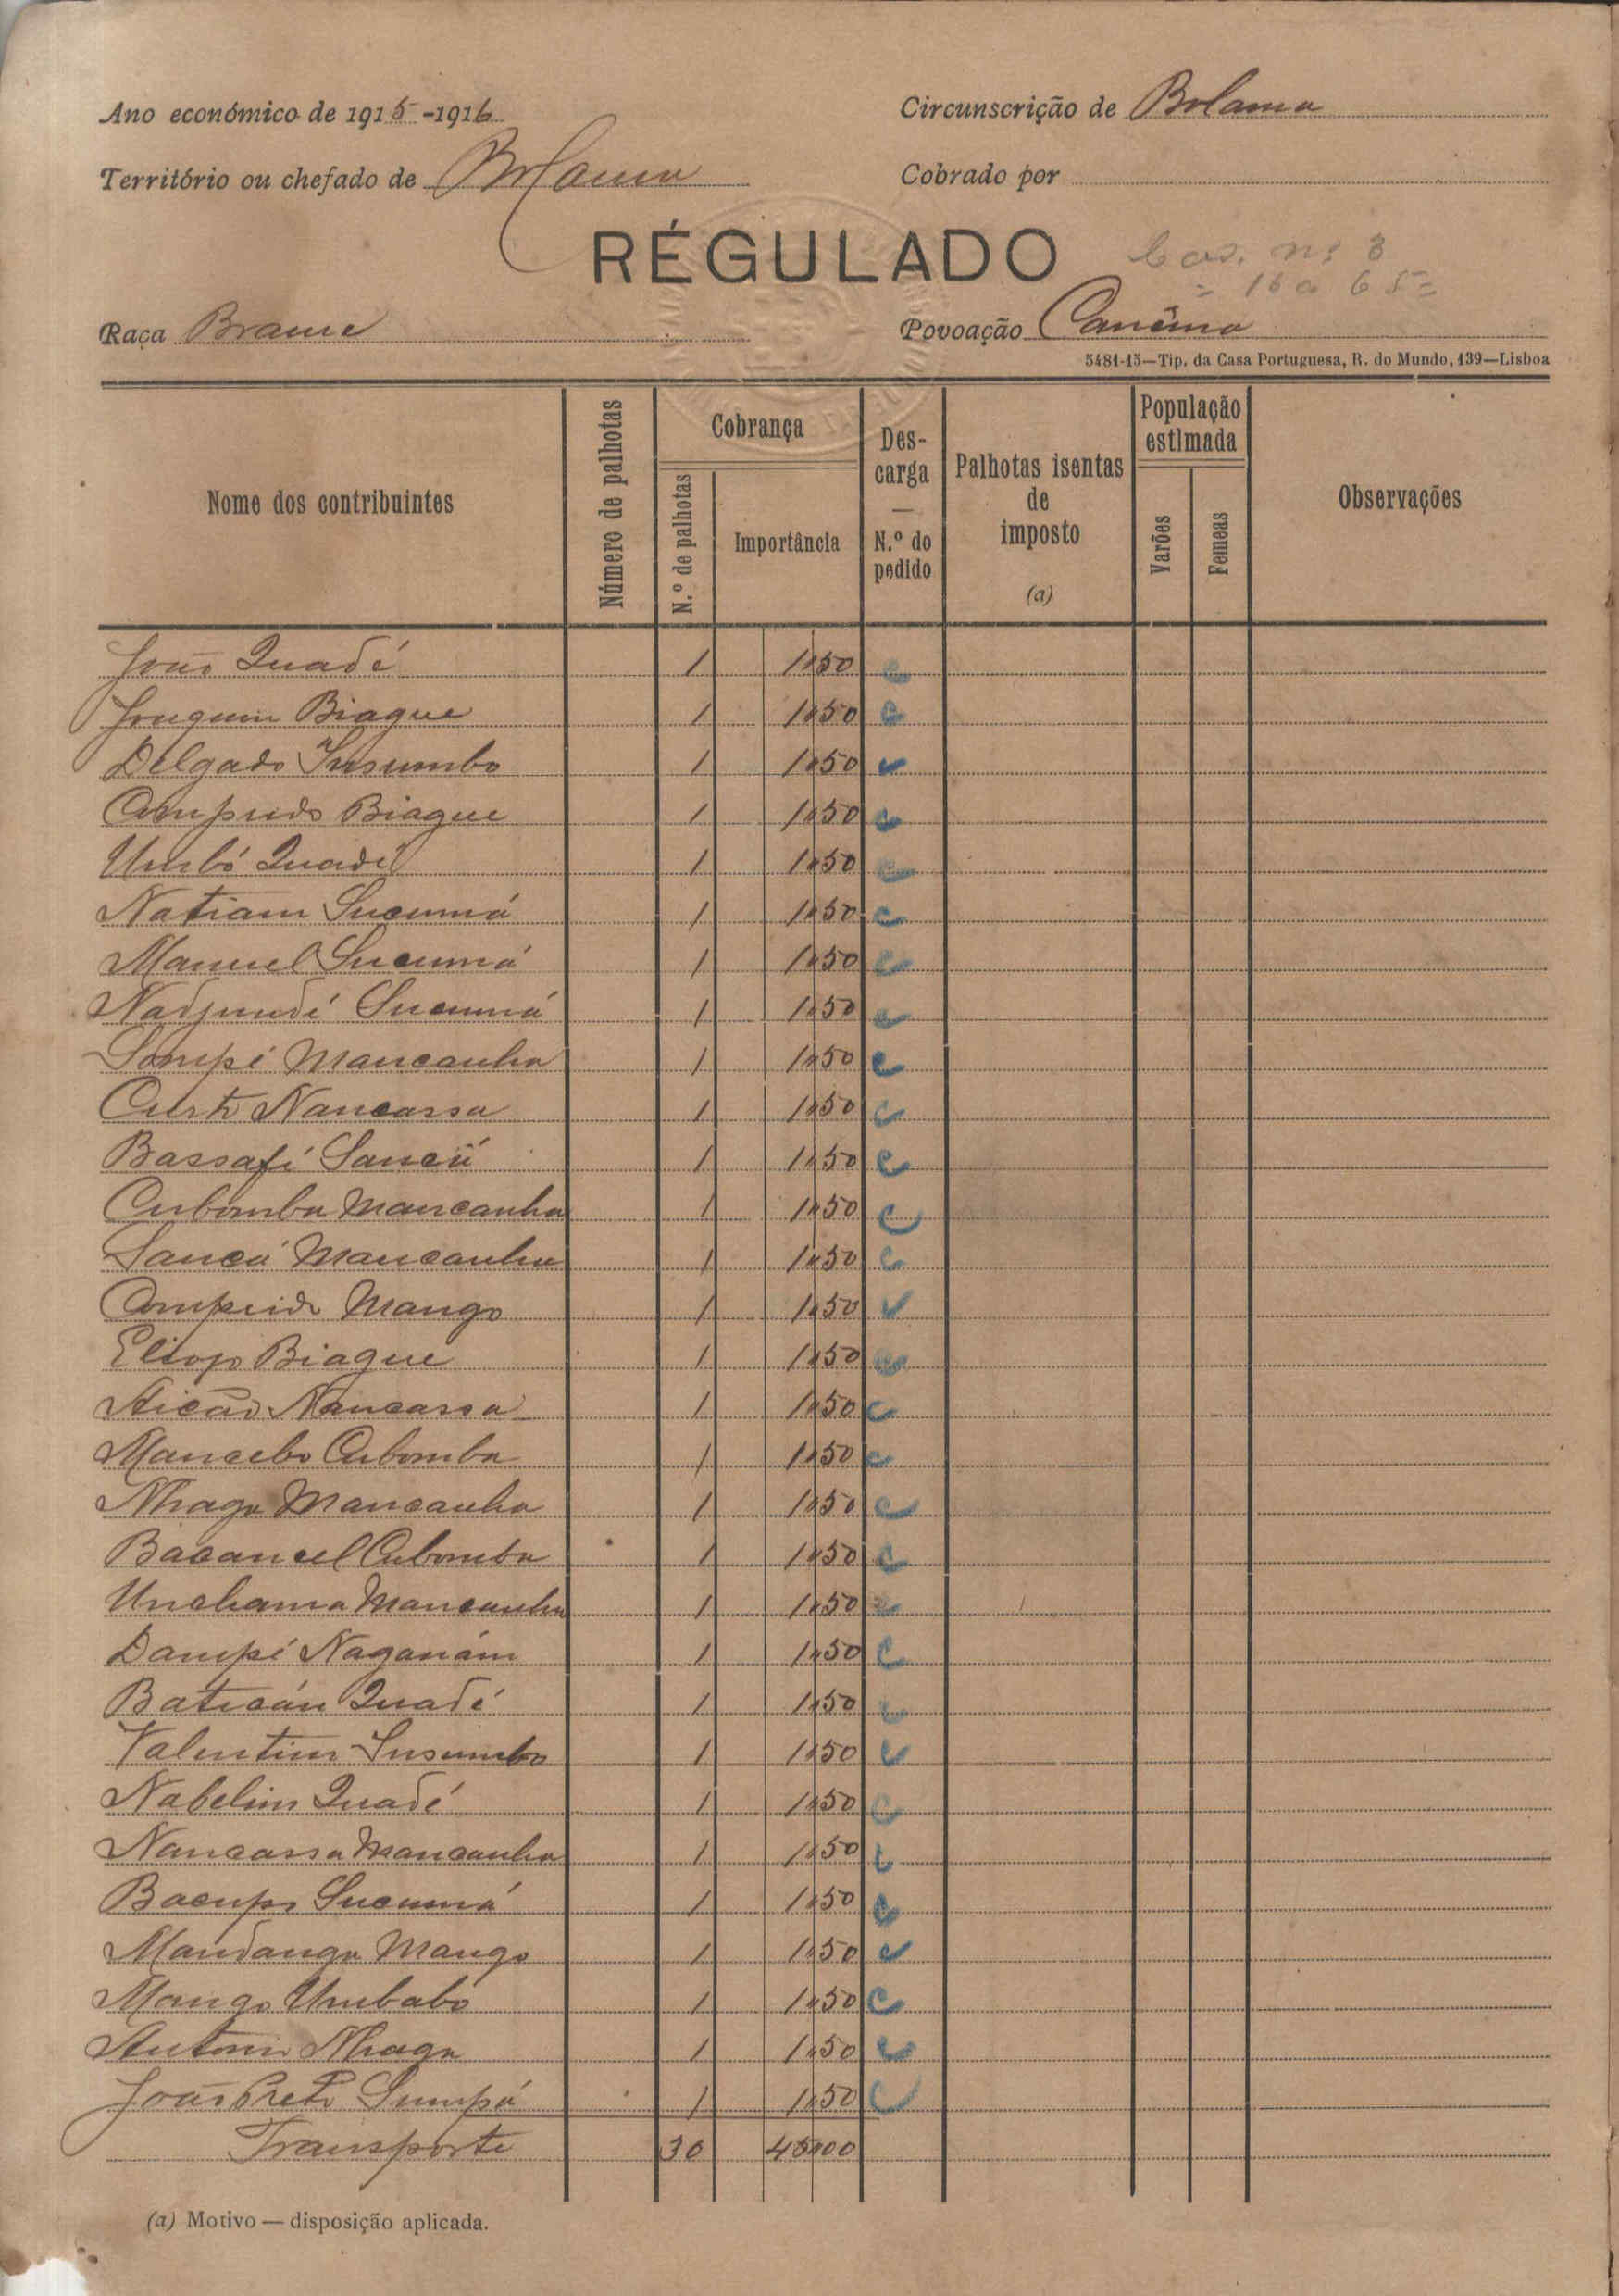 Ano económico de 1915-1916
Circunscrição de Bolama
Território ou chefado de Bolama
Cobrado por
RÉGULADO
nº 3
= 16 a 65=
Raça Brame
Povoação Canêma
5481-15—Tip. da Casa Portuguesa, R. do Mundo, 139—Lisboa
Nome dos contribuintes
Número de palhotas
Cobrança
N.º de palhotas
Importância
Descarga — N.º do pedido
Palhotas isentas de imposto (a)
População estimada
Varões
Femeas
Observações
João Quadé 1 1$50
Joaquim Biague 1 1$50
Delgado Insumbo 1 1$50
Comprido Biague 1 1$50
Umbó Quadé 1 1$50
Natiam Sucumá 1 1$50
Manuel Sucumá 1 1$50
Nadjundí Sucumá 1 1$50
Sompé Mancanha 1 1$50
Curto Nancassa 1 1$50
Bassafí 1 1$50
Cubomba Mancanha 1 1$50
Sancá Mancanha 1 1$50
Comprido Mango 1 1$50
Biague 1 1$50
Nancassa 1 1$50
Mancebo Cubomba 1 1$50
Nhaga Mancanha 1 1$50
Bacancel Cubomba 1 1$50
Unchama Mancanha 1 1$50
Dampé Naganám 1 1$50
Baticán Quadé 1 1$50
Valentim Insumbo 1 1$50
Nabelim Quadé 1 1$50
Nancassa Mancanha 1 1$50
Bacupo Sucumá 1 1$50
Mandanga Mango 1 1$50
Mango Umbabó 1 1$50
Antonio Nhaga 1 1$50
João Preto Sumpá 1 1$50
Transporte 30 45$00
(a) Motivo — disposição aplicada.